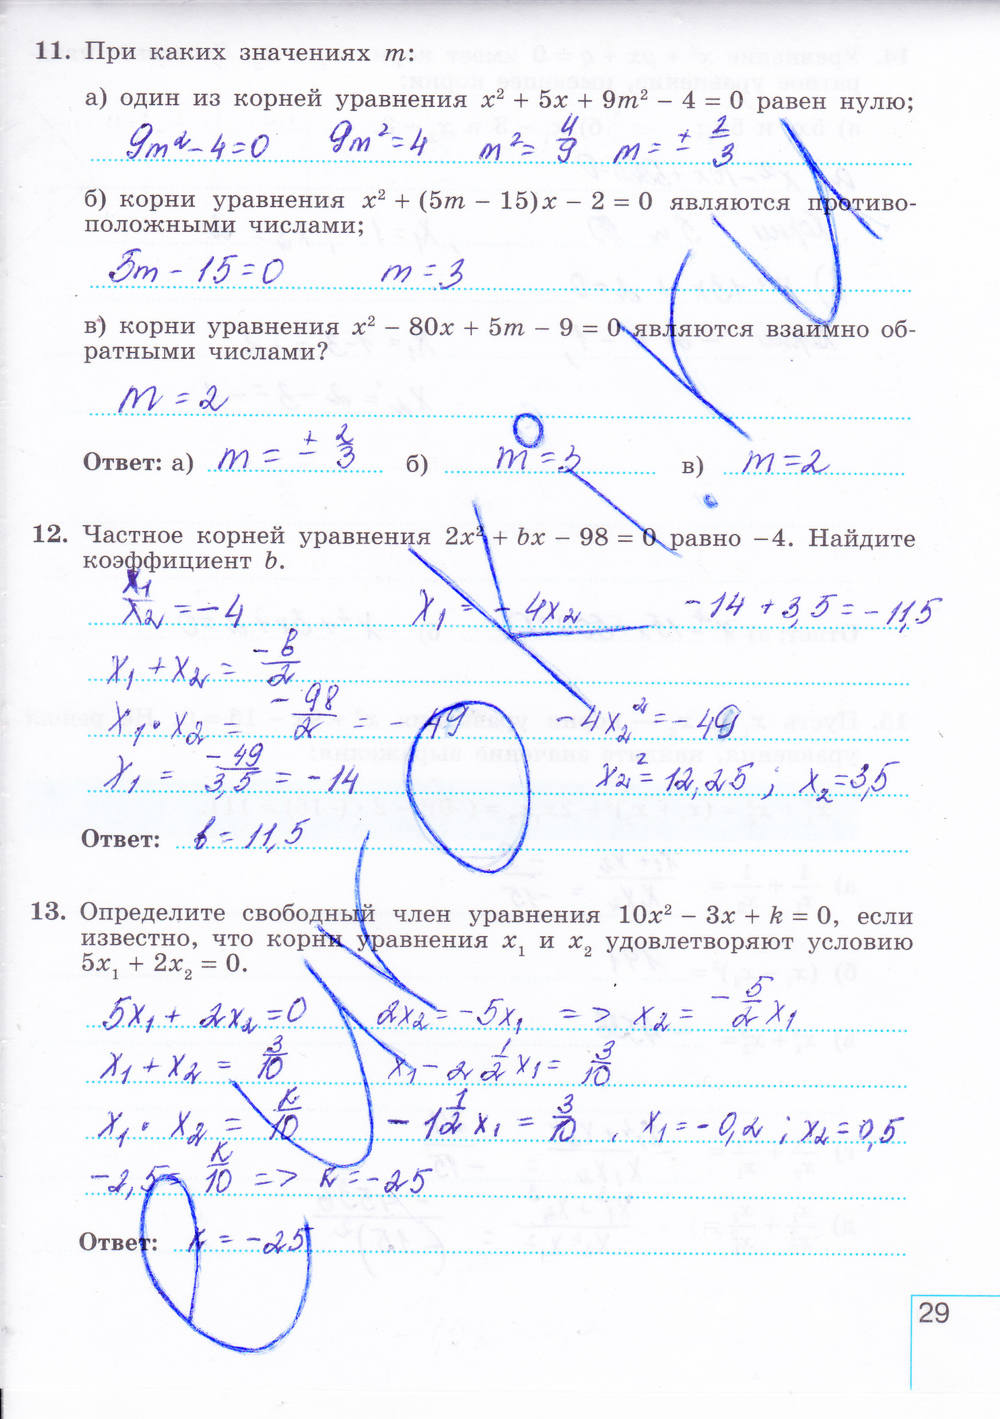 11. При каких значениях m:
а) один из корней уравнения x² + 5x + 9m² − 4 = 0 равен нулю;
9m² − 4 = 0    9m² = 4    m² = 4/9    m = ± 2/3
б) корни уравнения x² + (5m − 15)x − 2 = 0 являются противо-
положными числами;
5m − 15 = 0    m = 3
в) корни уравнения x² − 80x + 5m − 9 = 0 являются взаимно об-
ратными числами?
m = 2
Ответ: а) m = ± 2/3    б) m = 3    в) m = 2
12. Частное корней уравнения 2x² + bx − 98 = 0 равно −4. Найдите
коэффициент b.
x₁/x₂ = −4    x₁ = −4x₂    −14 + 3,5 = −11,5
x₁ + x₂ = −b/2
x₁ · x₂ = −98/2 = −49    4x₂² = −49
x₁ = −49/3,5 = −14    x₂² = 12,25 ; x₂ = 3,5
Ответ: b = 11,5
13. Определите свободный член уравнения 10x² − 3x + k = 0, если
известно, что корни уравнения x₁ и x₂ удовлетворяют условию
5x₁ + 2x₂ = 0.
5x₁ + 2x₂ = 0    2x₂ = −5x₁ => x₂ = −5/2 x₁
x₁ + x₂ = 3/10    x₁ − 2 1/2 x₁ = 3/10
x₁ · x₂ = k/10    −1 1/2 x₁ = 3/10 , x₁ = −0,2 ; x₂ = 0,5
−2,5 = k/10 => k = −25
Ответ: k = −25
29